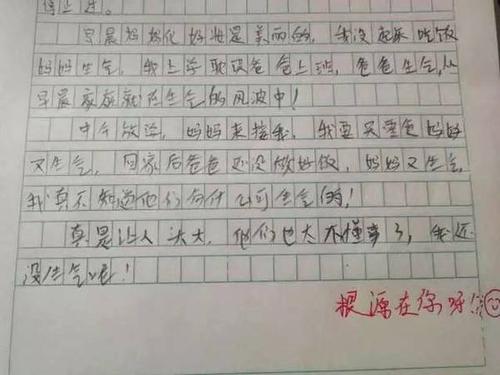 停止过。
早晨妈妈化好妆是美丽的,我没起床吃饭
妈妈生气,我上学耽误爸爸上班,爸爸生气,从
早晨家庭就在生气的风波中!
中午放学,妈妈来接我,我要买零食妈妈
又生气,回家后爸爸还没做好饭,妈妈又生气,
我真不知道他们有什么可生气的!
真是让人头大,他们也太不懂事了,我还
没生气呢!
根源在你呀!